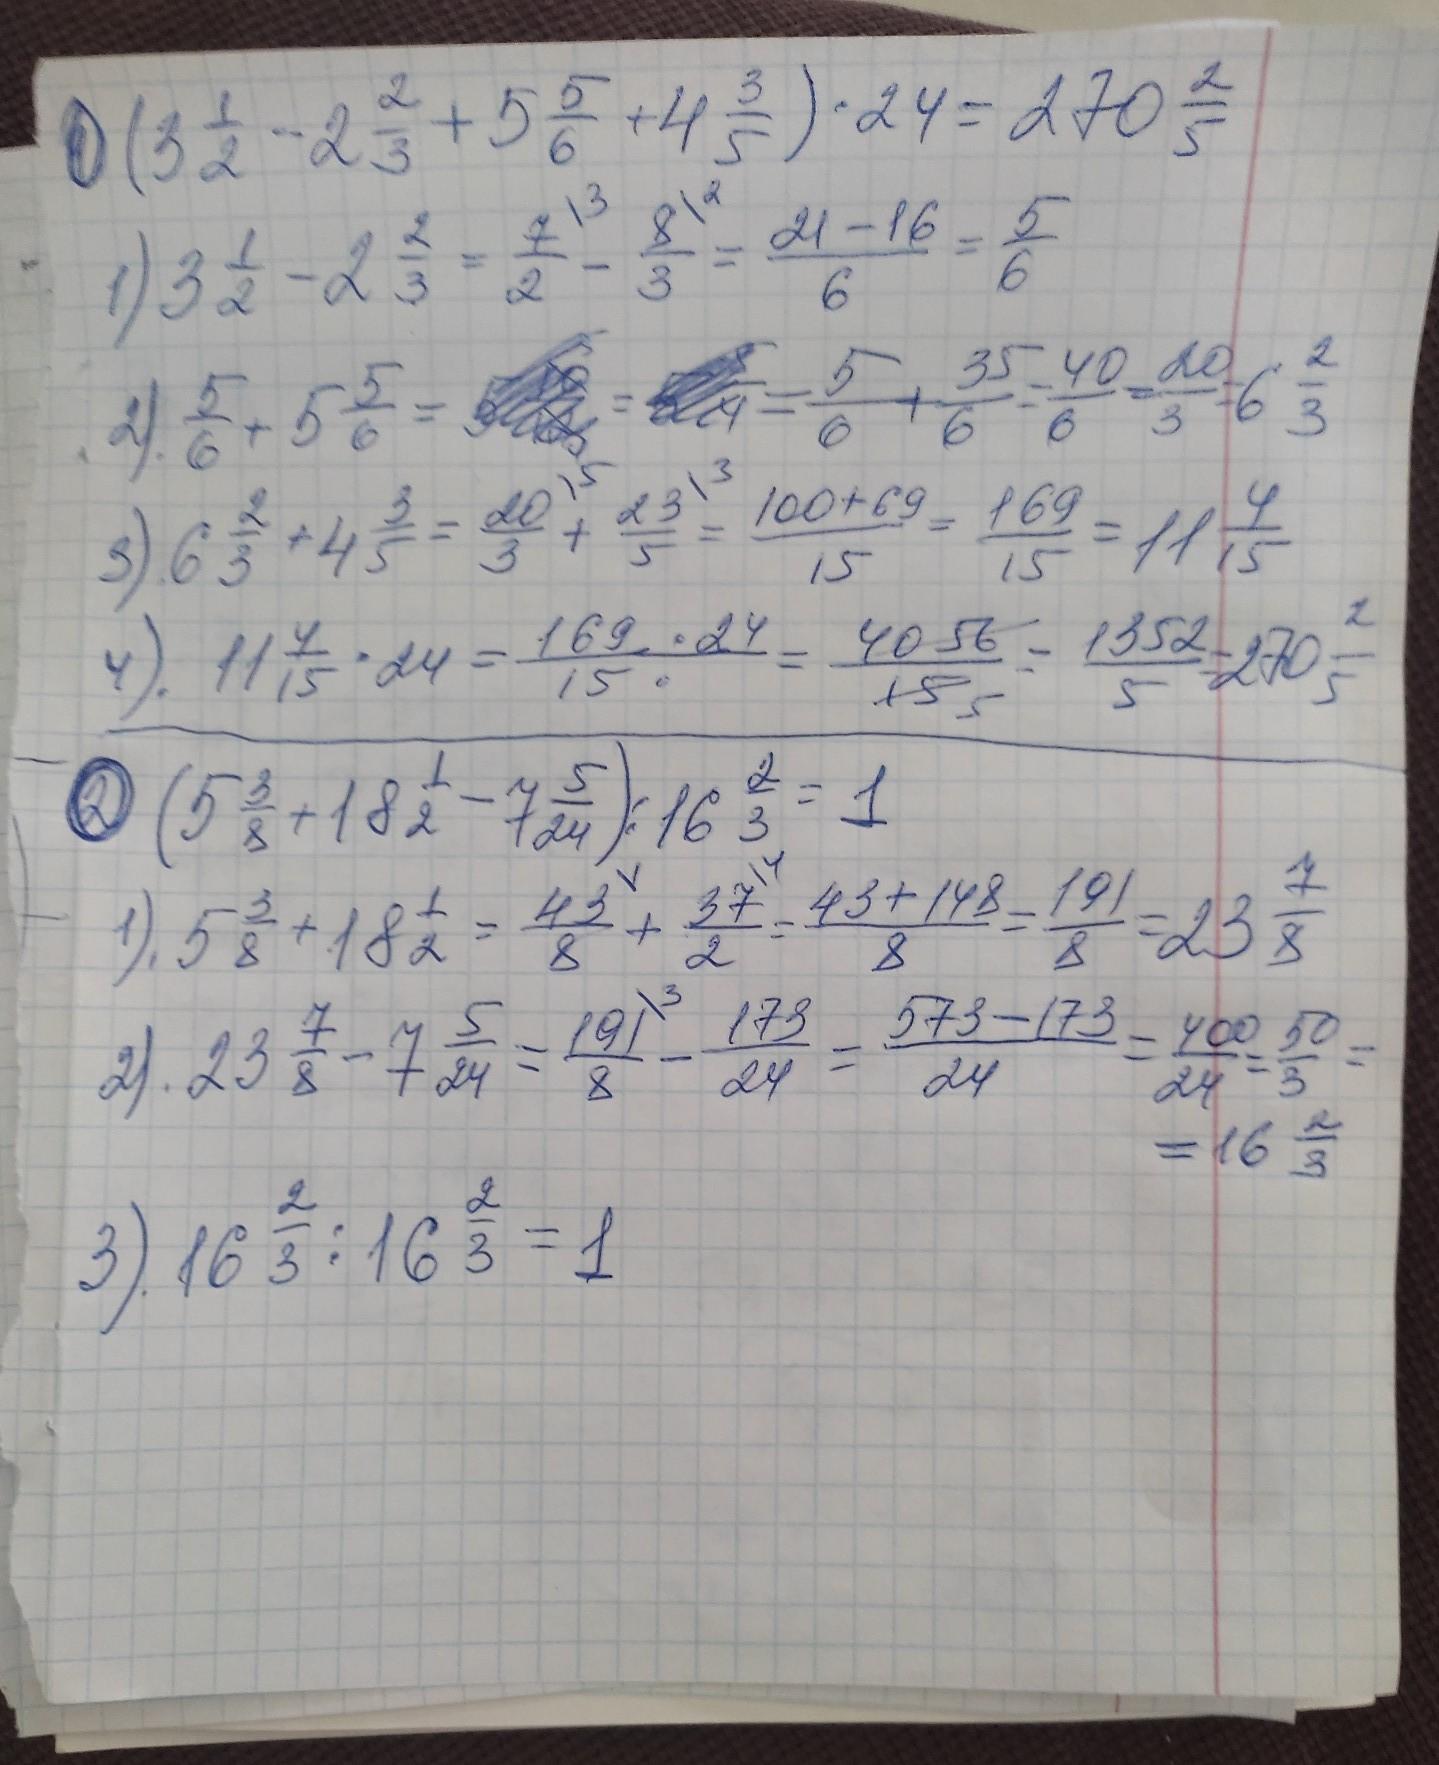 ① (3 1/2 - 2 2/3 + 5 5/6 + 4 3/5) · 24 = 270 2/5
1) 3 1/2 - 2 2/3 = 7/2 \3 - 8/3 \2 = (21 - 16)/6 = 5/6
2). 5/6 + 5 5/6 = = = 5/6 + 35/6 = 40/6 = 20/3 = 6 2/3
3). 6 2/3 + 4 3/5 = 20/3 \5 + 23/5 \3 = (100+69)/15 = 169/15 = 11 4/15
4). 11 4/15 · 24 = (169 · 24)/15 = 4056/15 5 = 1352/5 = 270 2/5
② (5 3/8 + 18 1/2 - 7 5/24) : 16 2/3 = 1
1). 5 3/8 + 18 1/2 = 43/8 + 37/2 \4 = (43 + 148)/8 = 191/8 = 23 7/8
2). 23 7/8 - 7 5/24 = 191/8 \3 - 173/24 = (573 - 173)/24 = 400/24 = 50/3 =
= 16 2/3
3). 16 2/3 : 16 2/3 = 1